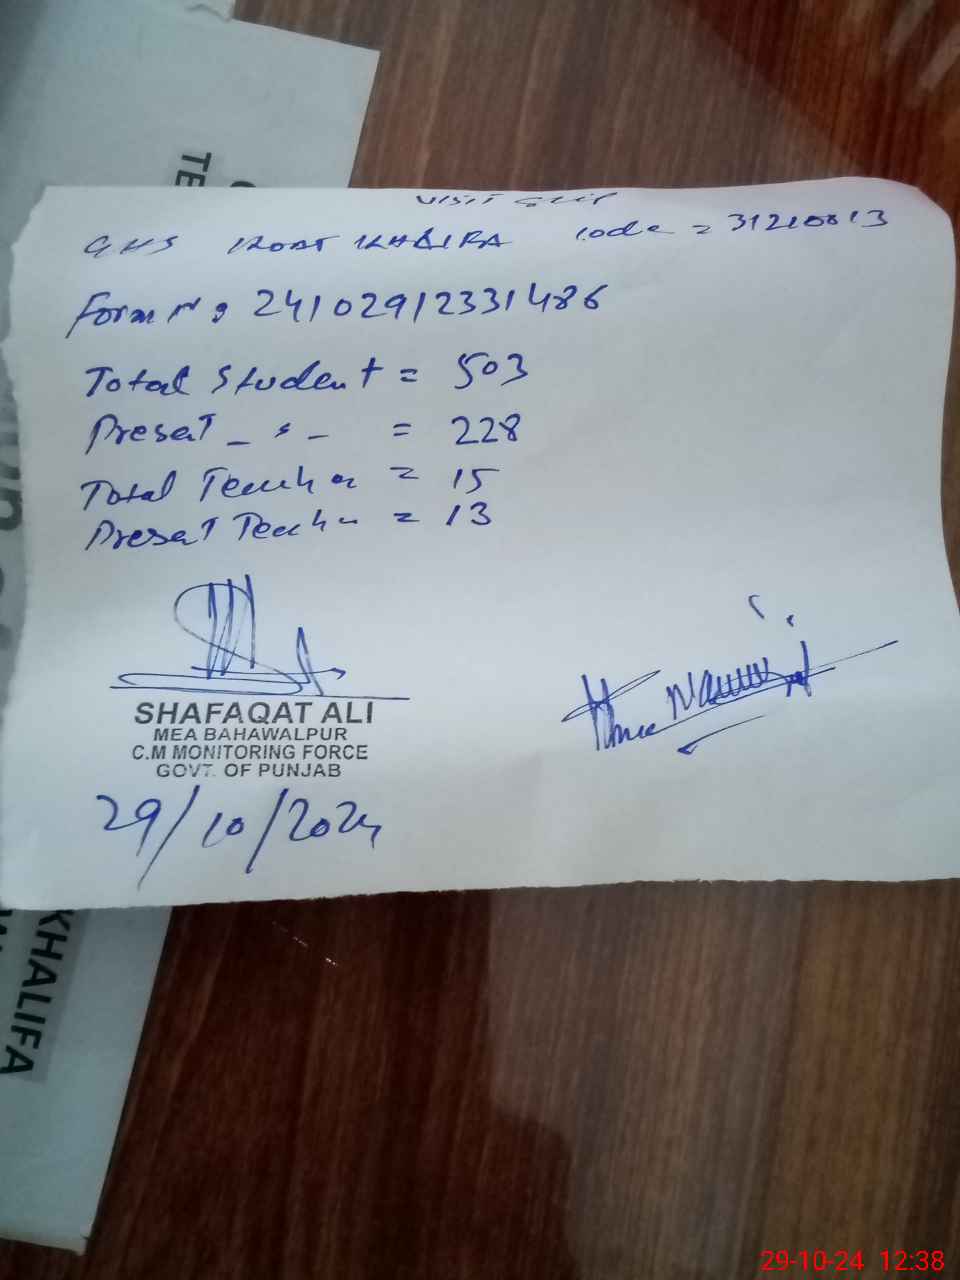 VISIT SLIP
GHS KOAT KHALIFA code = 31210813
Form No 24102912331486
Total Student = 503
Presat - " - = 228
Total Teacher = 15
Presat Teacher = 13
SHAFAQAT ALI
MEA BAHAWALPUR
C.M MONITORING FORCE
GOVT. OF PUNJAB
29/10/2024
TE
KHALIFA
29-10-24 12:38